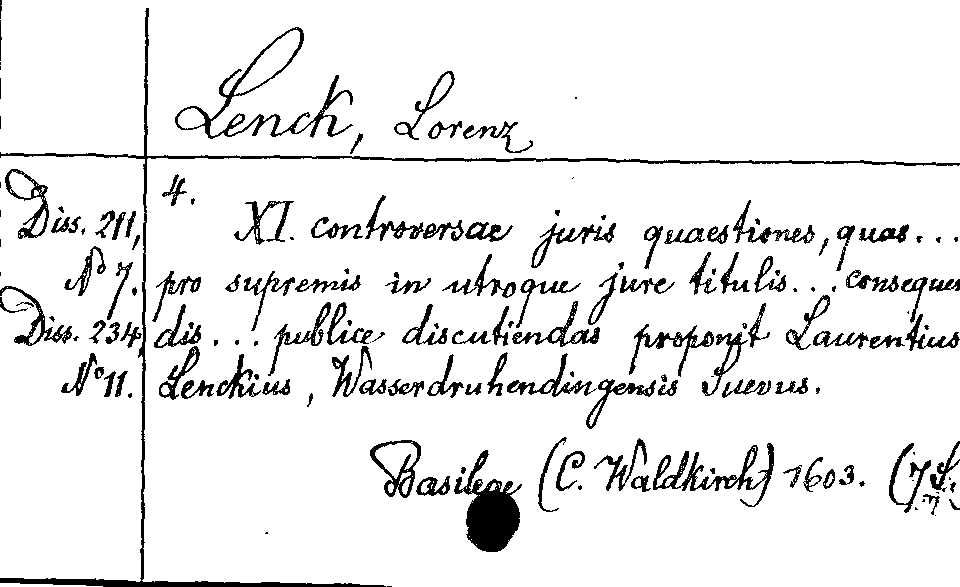 Lenck, Lorenz
4.
Diss. 211, XI. controversae juris quaestiones, quas...
No 7. pro supremis in utroque jure titulis... conseque
Diss. 234, dis... publice discutiendas proponit Laurentius
No 11. Lenckius, Wasserdruhendingensis Suevus.
Basileae (C. Waldkirch) 1603. (7